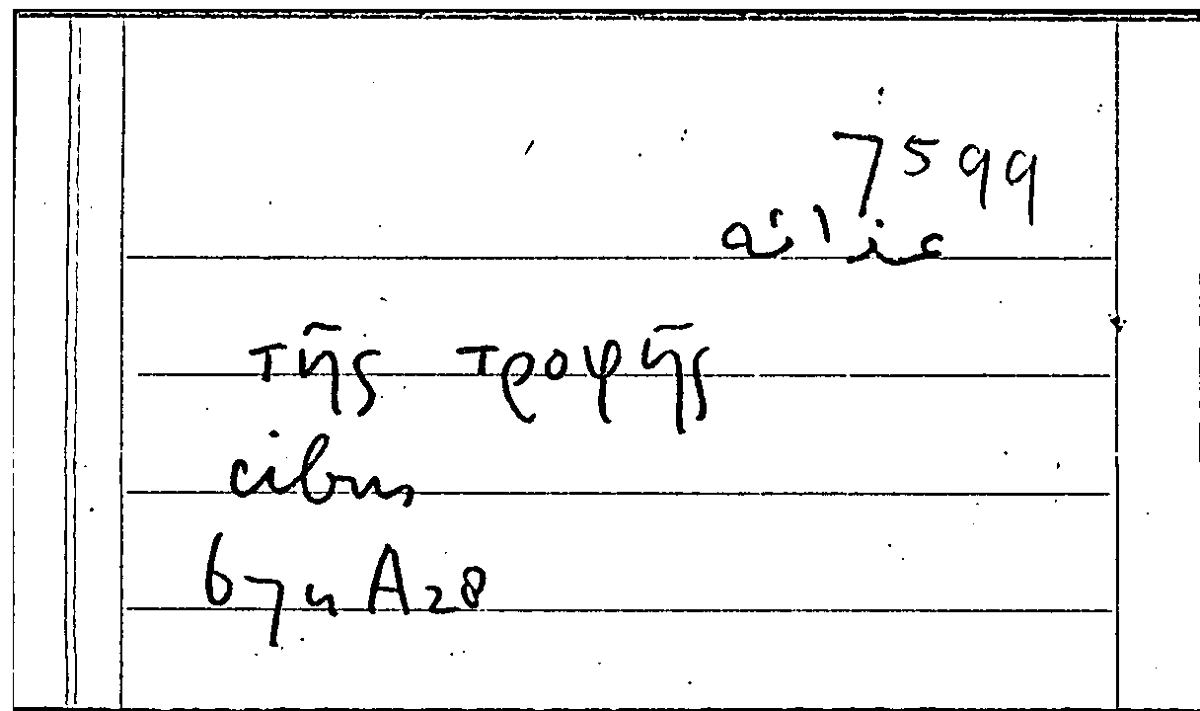 7599
غذائه
τῆς τροφῆς
cibus
674 A 28